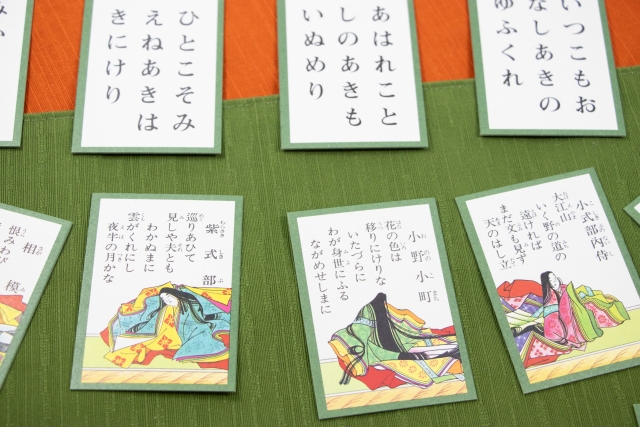 いつこもお
なしあきの
ゆふくれ
あはれこと
しのあきも
いぬめり
ひとこそみ
えねあきは
きにけり
小式部内侍
大江山
いく野の道の
遠ければ
まだ文も見ず
天のはし立
小野小町
花の色は
移りにけりな
いたづらに
わが身世にふる
ながめせしまに
紫式部
巡りあひて
見しや夫とも
わかぬまに
雲がくれにし
夜半の月かな
相模
恨みわび